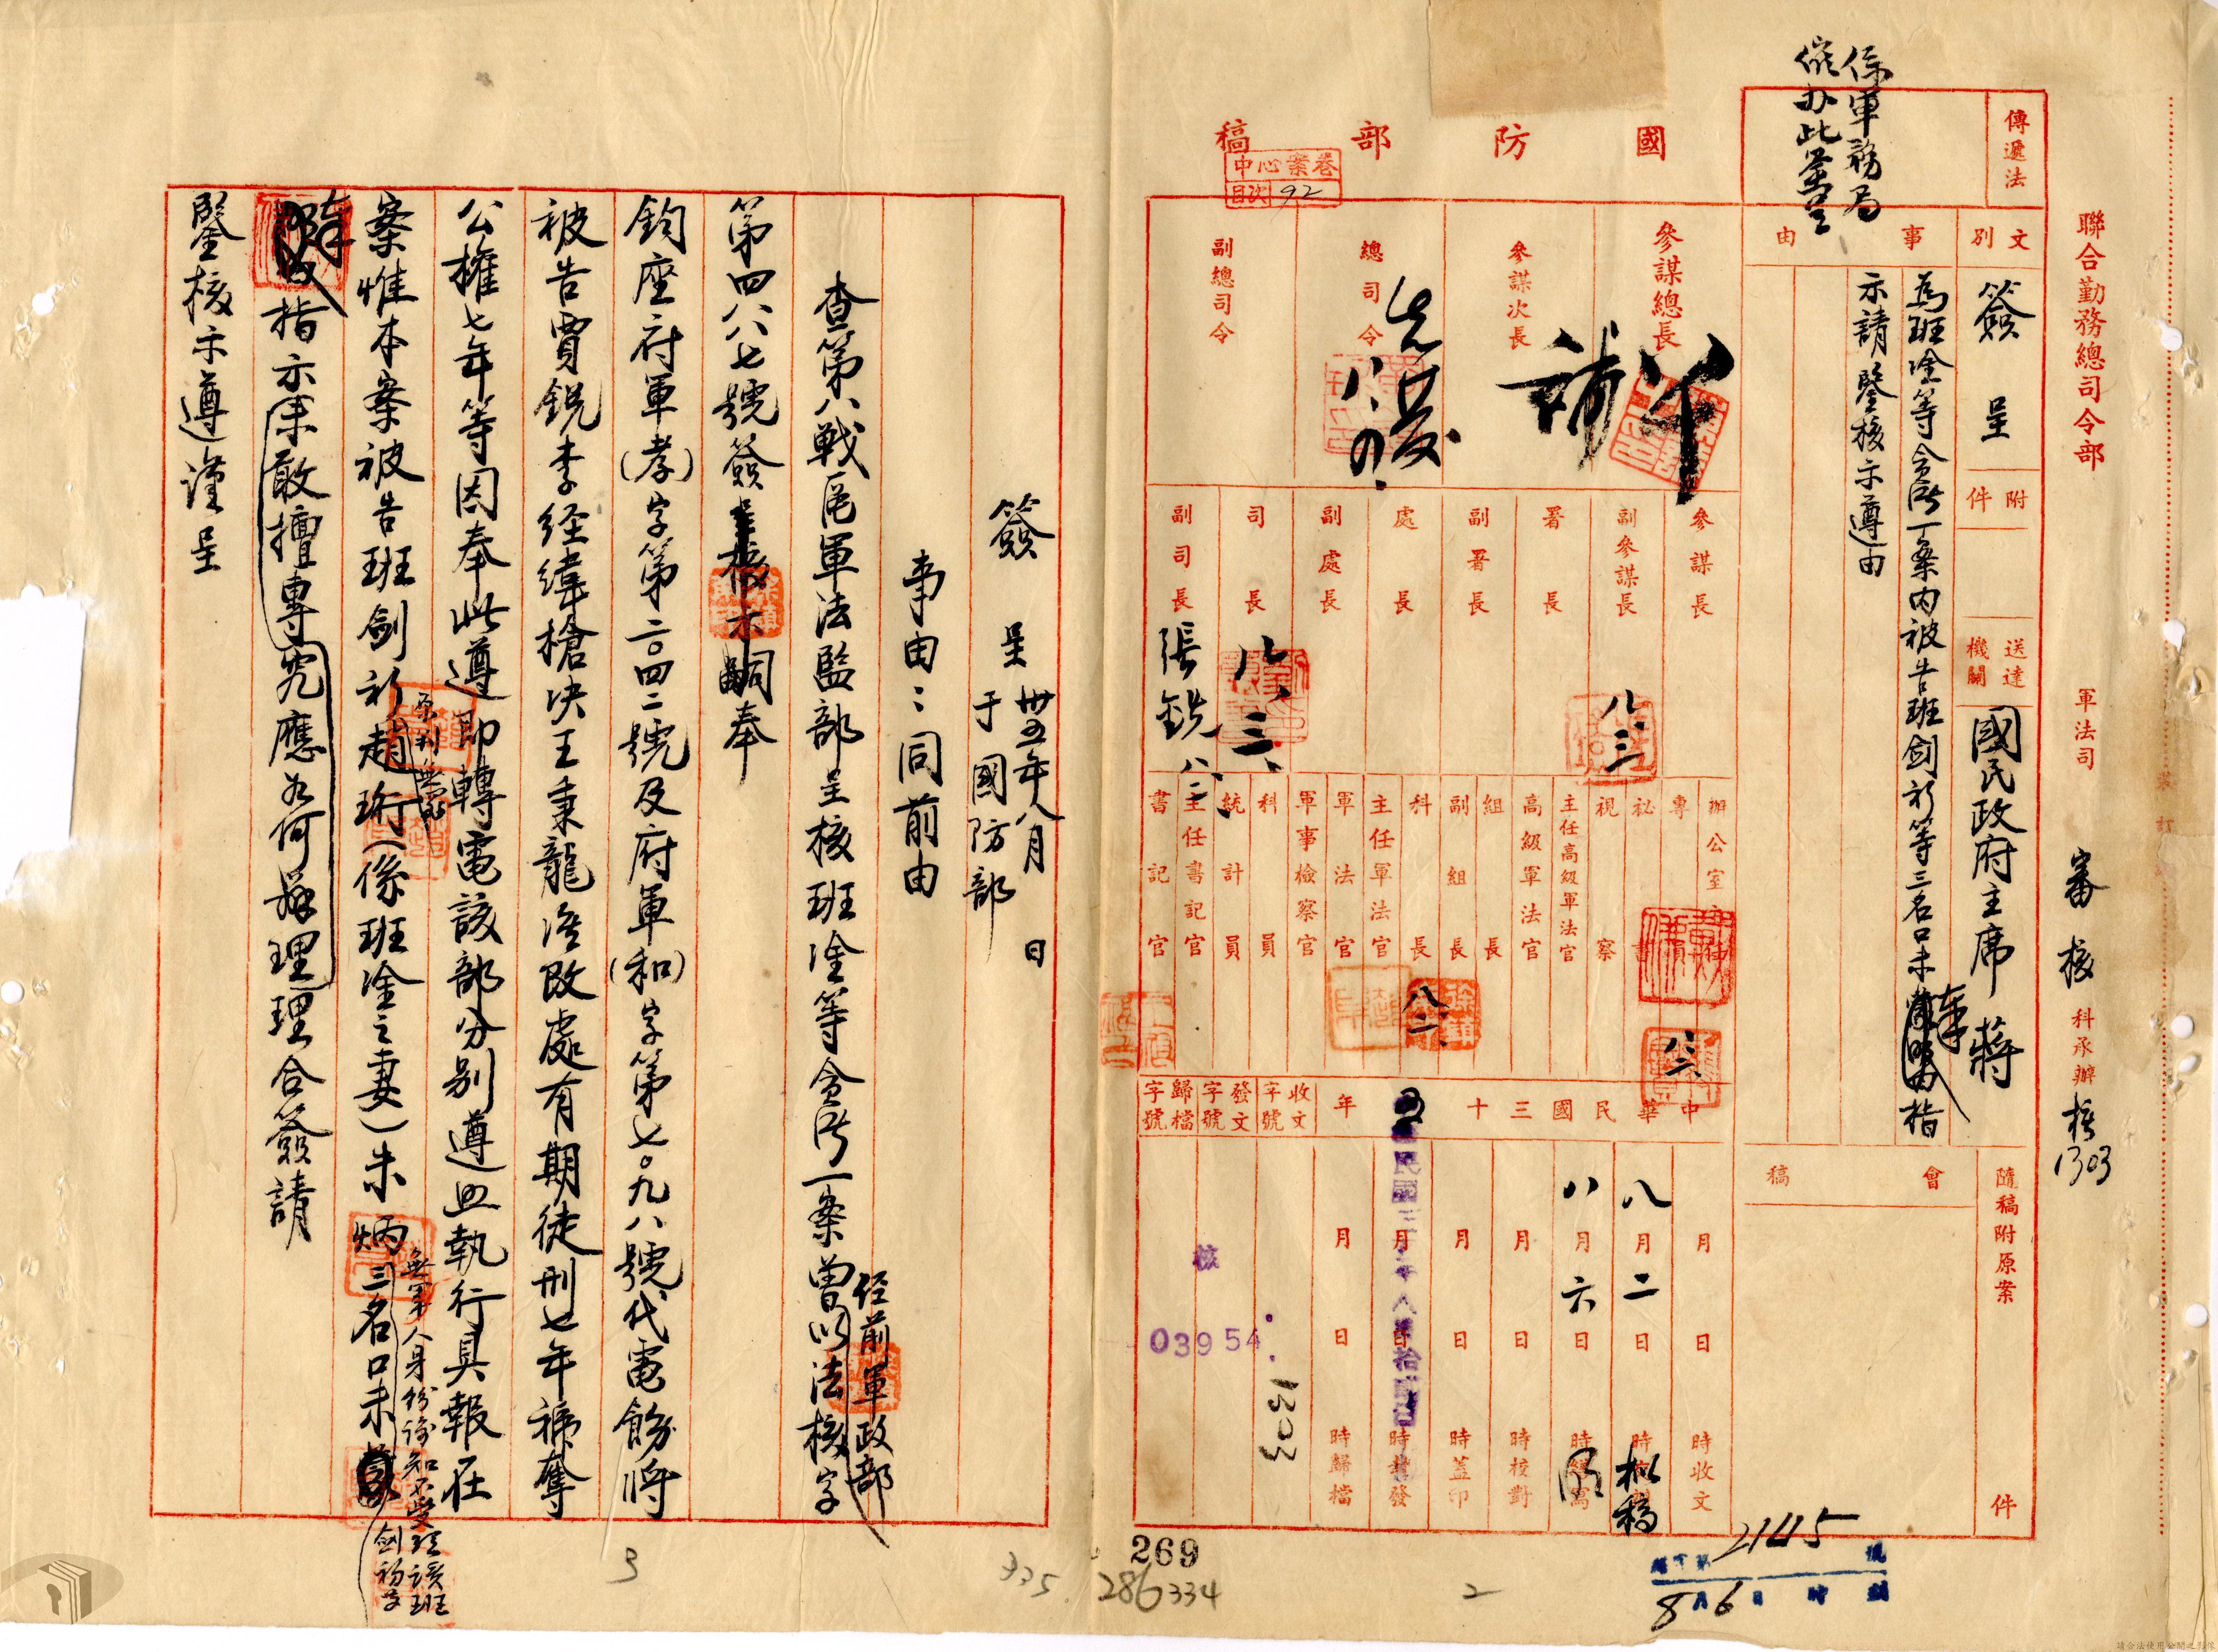 聯合勤務總司令部 軍法司 審核科承辦 核1303
傳遞法
係軍務局
催办此葉呈
國防部稿
中心案卷
目次 92
文別 簽呈
附件
送達機關 國民政府主席蔣
事由
為班淦等貪污一案內被告班劍衫等三名口未奉指
示請鑒核示遵由
隨稿附原案 件
會稿
參謀總長
參謀次長
總司令
副總司令
參謀長
副參謀長
署長
副署長
處長
副處長
司長
副司長 張銳 八、二、
八、三、
八、三
辦公室主
專
秘書
視察
主任高級軍法官
高級軍法官
組長
副組長
科長
主任軍法官
軍法官
軍事檢察官
科員
統計員
主任書記官
書記官
八、二、
中華民國三十五年
月 日 時收文
八月二日 時 拟稿
八月六日 時繕寫
月 日 時校對
月 日 時蓋印
月 日 時封發
月 日 時歸檔
收文字號
發文字號
歸檔字號
1303
核
03954
2145
8月6日 時
269
286 334
2
簽呈 卅五年八月 日
于國防部
事由：同前由
查第八戰區軍法監部呈核班淦等貪污一案曾經前軍政部以法核字
第四八八七號簽呈核示嗣奉
鈞座府軍(孝)字第二〇四二號及府軍(和)字第七〇九八號代電飭將
被告賈銳李経緯槍决王秉龍淦改處有期徒刑七年褫奪
公權七年等因奉此遵即轉電該部分别遵照執行具報在
案惟本案被告班劍衫趙珩(係班淦之妻)朱炳三名口未
原判無罪
無軍人身份
奉指示未敢擅專究應如何辦理理合簽請
鑒核示遵謹呈
3
335
請合法使用公開之影像